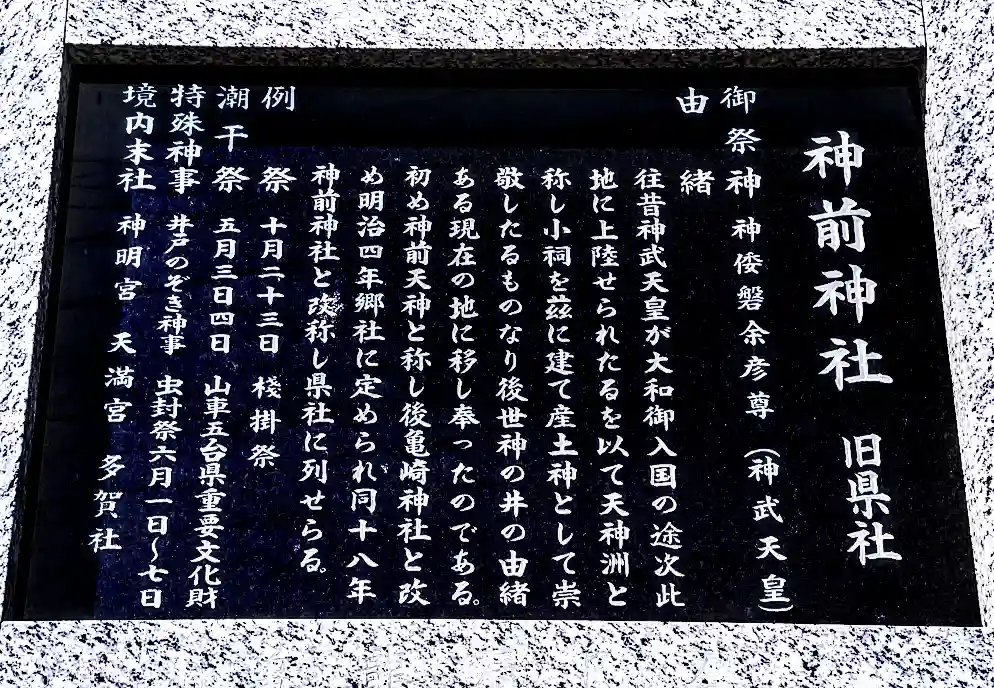 神前神社 旧県社
御祭神 神倭磐余彦尊(神武天皇)
由緒
往昔神武天皇が大和御入国の途次此
地に上陸せられたるを以て天神洲と
称し小祠を茲に建て産土神として崇
敬したるものなり後世神の井の由緒
ある現在の地に移し奉ったのである。
初め神前天神と称し後亀崎神社と改
め明治四年郷社に定められ同十八年
神前神社と改称し県社に列せらる。
例祭 十月二十三日 棧掛祭
潮干祭 五月三日四日 山車五台県重要文化財
特殊神事 井戸のぞき神事 虫封祭六月一日~七日
境内末社 神明宮 天満宮 多賀社